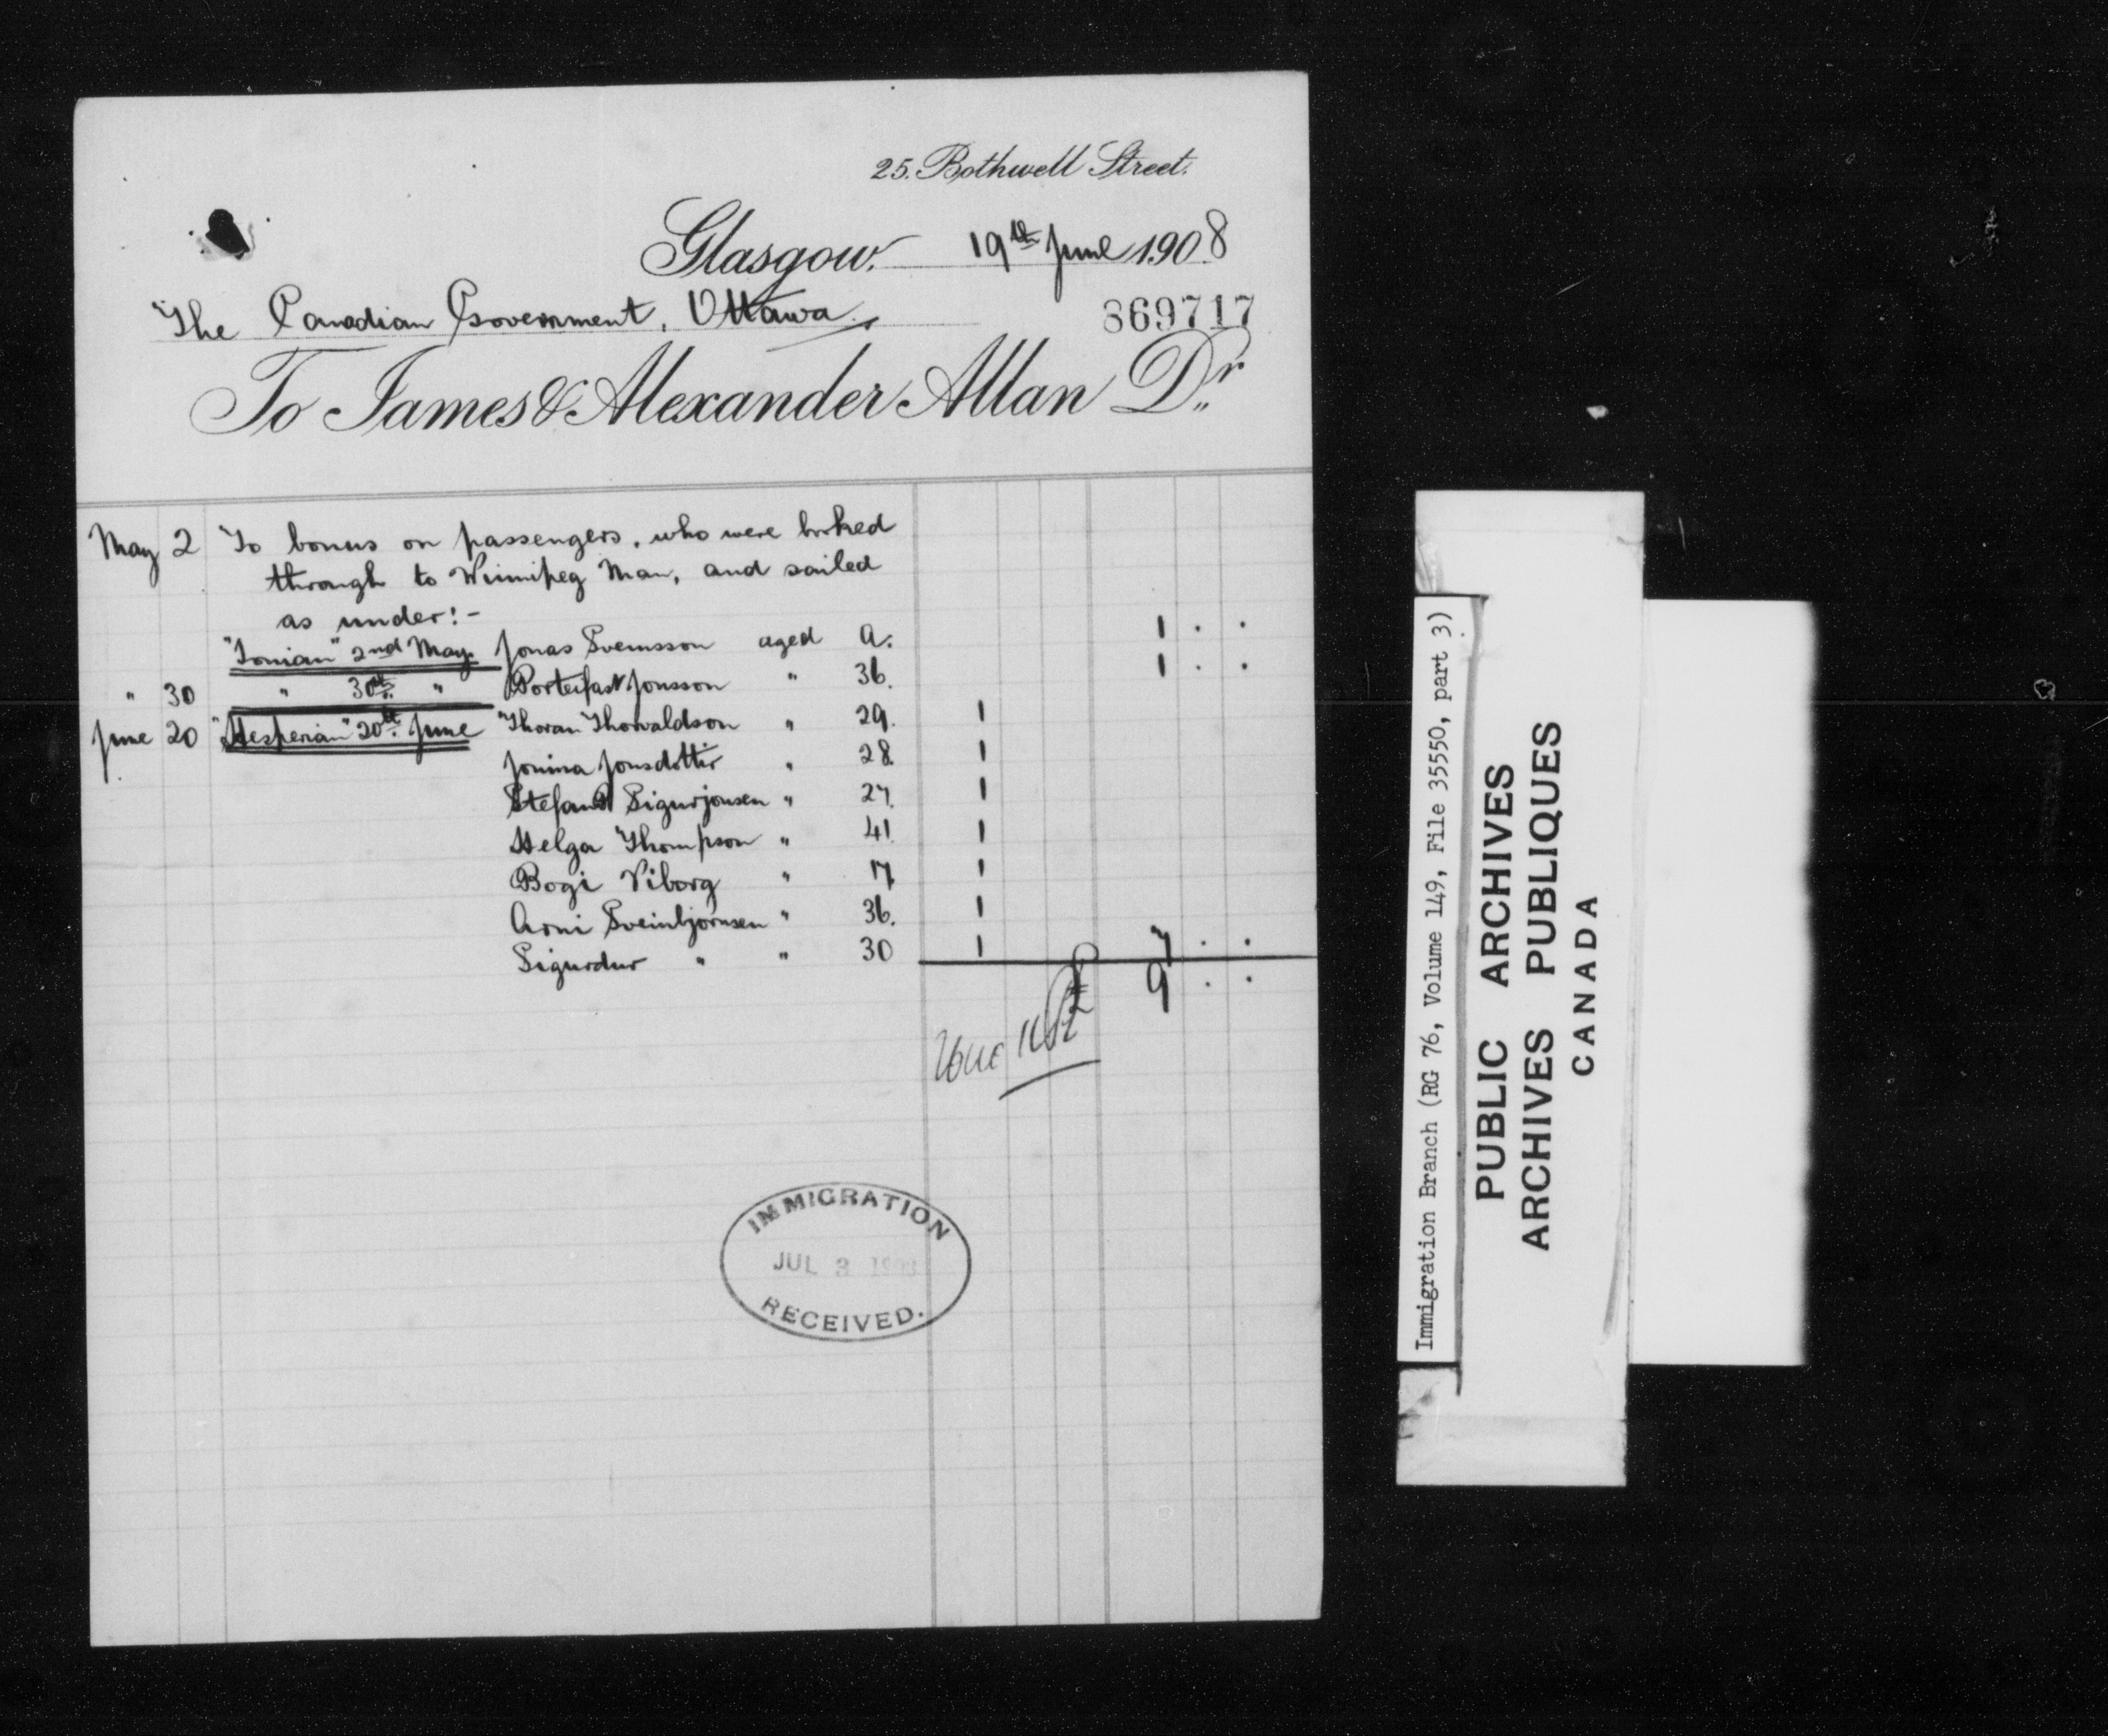 25. Bothwell Street.
Glasgow. 19th June 1908
The Canadian Government, Ottawa.
869717
To James & Alexander Allan Dr.
May 2 To bonus on passengers, who were booked
through to Winnipeg Man, and sailed
as under:-
"Ionian" 2nd May. Jonas Sveinsson aged A. 1 . .
" 30 " 30th " Porteifast Jonsson " 36. 1 . .
June 20 "Hesperian" 20th June Thoran Thorvaldson " 29. 1
Jonina Jonsdottir " 28. 1
Stefan Sigurjonsen " 27. 1
Helga Thompson " 41. 1
Bogi Viborg " 17 1
Arni Sveinbjornsen " 36. 1
Sigurdur " " 30 1 7 . .
£ 9 . .
IMMIGRATION
JUL 3 1908
RECEIVED.
Immigration Branch (RG 76, Volume 149, File 35550, part 3)
PUBLIC ARCHIVES
ARCHIVES PUBLIQUES
CANADA